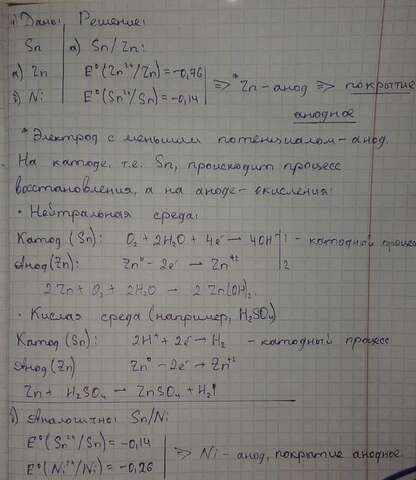 Дано: Решение:
Sn а) Sn/Zn:
а) Zn E⁰(Zn²⁺/Zn) = -0,76
б) Ni E⁰(Sn²⁺/Sn) = -0,14 => *Zn - анод => покрытие
анодное
* Электрод с меньшим потенциалом - анод.
На катоде, т.е. Sn, происходит процесс
восстановления, а на аноде - окисления:
• Нейтральная среда:
Катод (Sn): O₂ + 2H₂O + 4e⁻ → 4OH⁻ | 1 - катодный процесс
Анод (Zn): Zn⁰ - 2e⁻ → Zn⁺² | 2
2Zn + O₂ + 2H₂O → 2Zn(OH)₂.
• Кислая среда (например, H₂SO₄)
Катод (Sn): 2H⁺ + 2e⁻ → H₂ - катодный процесс
Анод (Zn) Zn⁰ - 2e⁻ → Zn⁺²
Zn + H₂SO₄ → ZnSO₄ + H₂↑
б) Аналогично: Sn/Ni
E⁰(Sn²⁺/Sn) = -0,14
E⁰(Ni²⁺/Ni) = -0,26 => Ni - анод, покрытие анодное